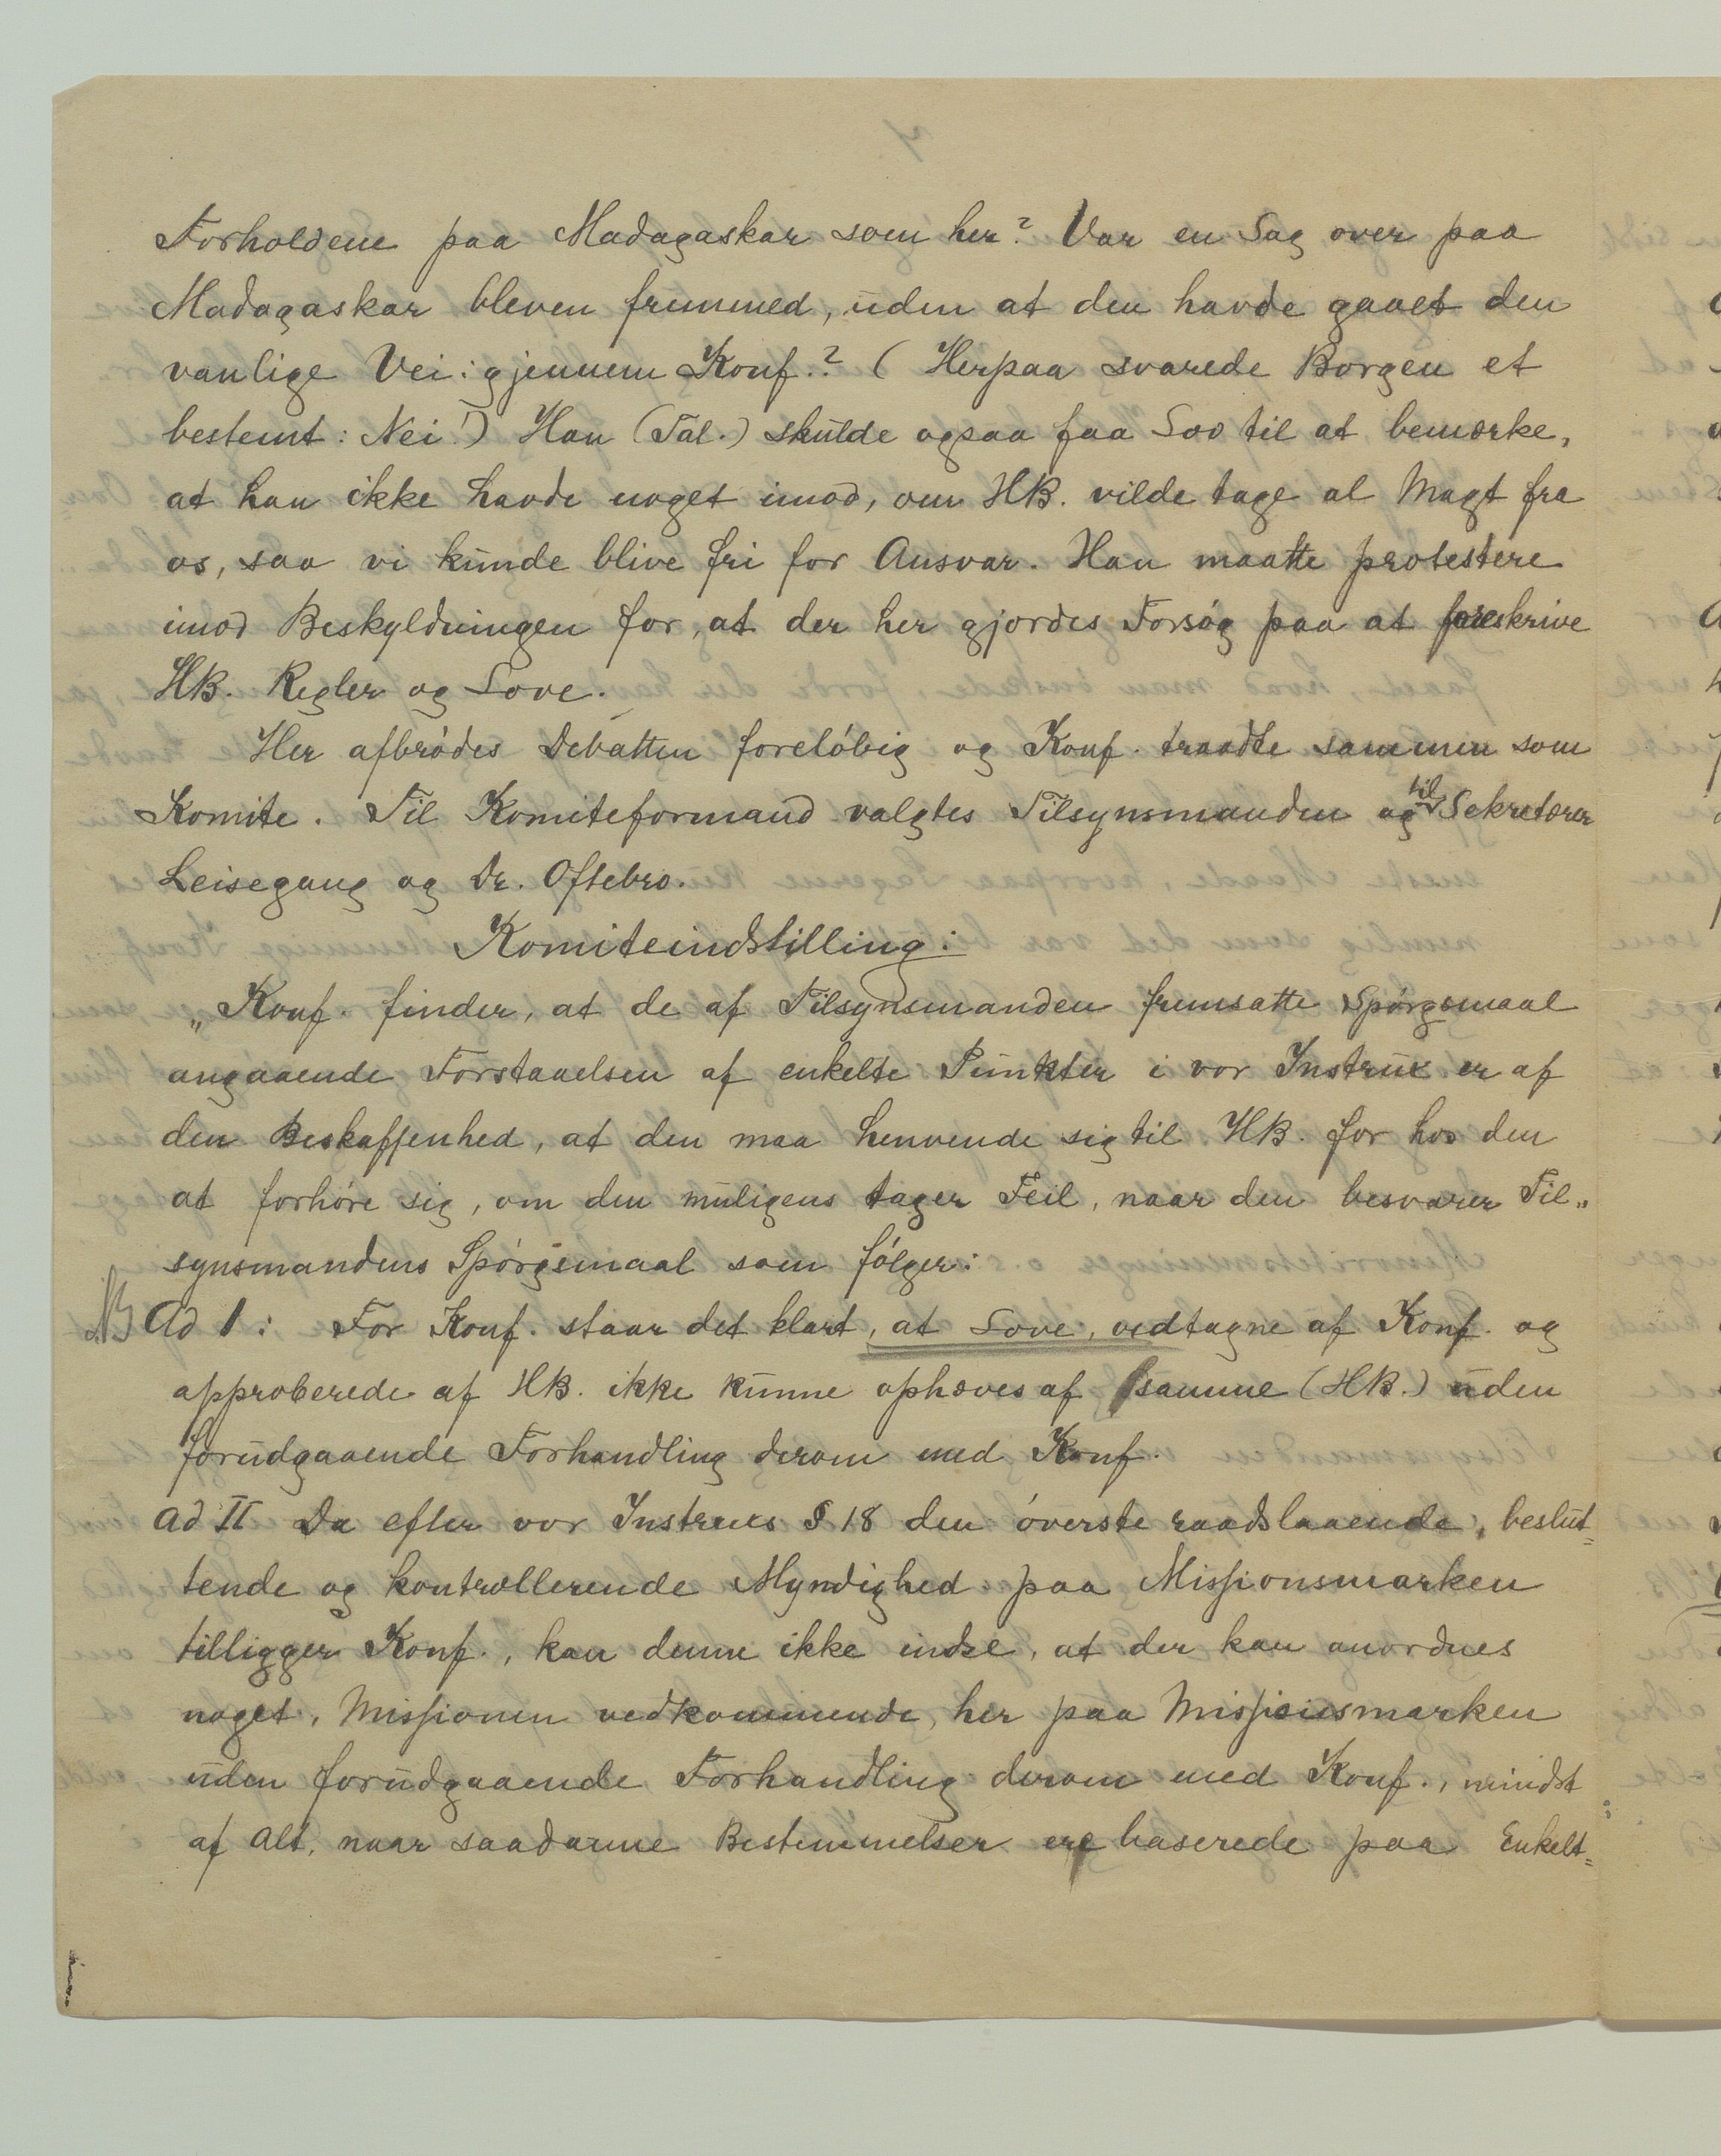 Forholdene paa Madagaskar som her? Var en Sag over paa
Madagaskar bleven fremmed, uden at den havde gaaet den
vanlige Vei: gjennem Konf.? (Herpaa svarede Borgen et
bestemt: Nei!) Han (Tal.) skulde ogsaa faa Lov til at bemærke,
at han ikke havde noget imod, om HB. vilde tage al Magt fra
os, saa vi kunde blive fri for Ansvar. Han maatte protestere
imod Beskyldningen for, at der her gjordes Forsög paa at foreskrive
HB. Regler og Love.
Her afbrödes Debatten forelöbig og Konf. traadte sammen som
Komite. Til Komiteformand valgtes Tilsynsmanden og til Sekretærer
Leisegang og Dr. Oftebro.
Komiteindstilling:
„Konf. finder, at de af Tilsynsmanden fremsatte Spörgsmaal
angaaende Forstaaelsen af enkelte Punkter i vor Instrux er af
den Beskaffenhed, at den maa henvende sig til HB. for hos den
at forhöre sig, om den muligens tager Feil, naar den besvarer Til„
synsmandens Spörgsmaal som fölger:
NB Ad 1: For Konf. staar det klart, at Love, vedtagne af Konf. og
approberede af HB. ikke kunne ophæves af samme (HB.) uden
forudgaaende Forhandling derom med Konf.
Ad II Da efter vor Instruxs § 18 den överste raadslaaende, beslut=
tende og kontrollerende Myndighed paa Missionsmarken
tilligger Konf., kan denne ikke indse, at der kan anordnes
noget, Missionen vedkommende, her paa Missionsmarken
uden forudgaaende Forhandling derom med Konf., mindst
af Alt, naar saadanne Bestemmelser ere baserede paa Enkelt=